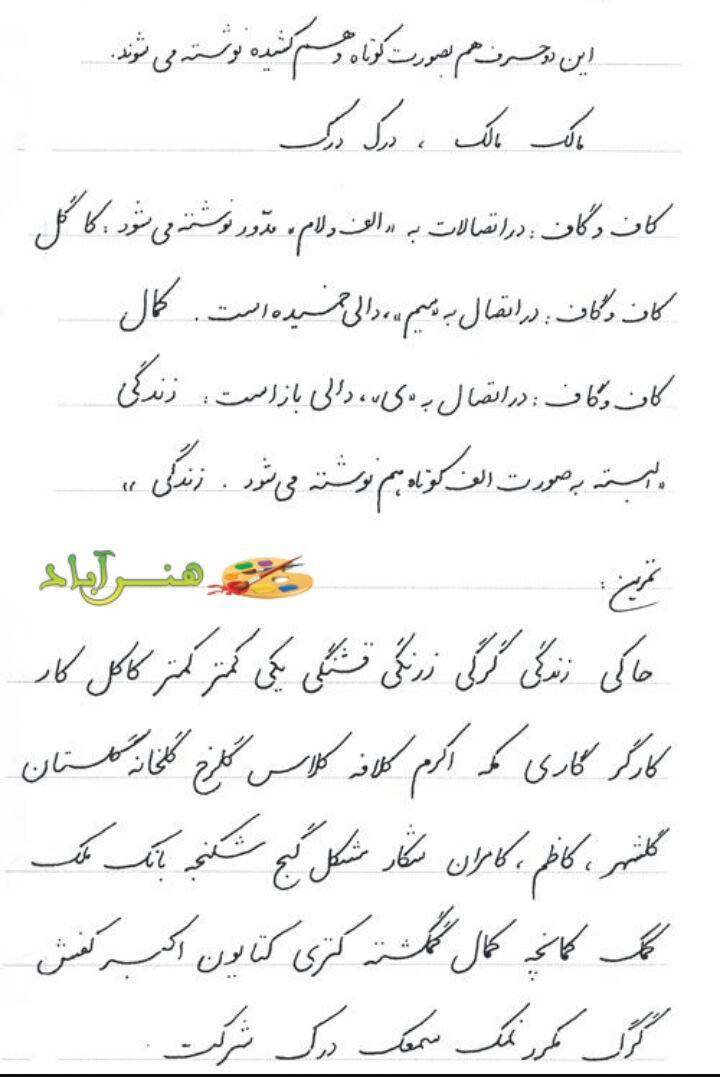 این دو حرف هم بصورت کوتاه و هم کشیده نوشته می شوند.
مالک مالک ، درک درک
کاف و گاف : در اتصالات به «الف و لام» مدّور نوشته می شود : کا گل
کاف و گاف : در اتصال به «میم»، دالی خمیده است . کمال
کاف و گاف : در اتصال به «ی»، دالی باز است : زندگی
«البته به صورت الف کوتاه هم نوشته می شود . زندگی»
هنرآباد
تمرین :
حاکی زندگی گرگی زرنگی قشنگی یکی کمتر کمتر کاکل کار
کارگر گاری مکه اکرم کلافه کلاس گلرخ گلخانه گلستان
گلشهر ، کاظم ، کامران شکار مشکل گنج شکنجه بانک ملک
کمک کمانچه کمال گمگشته کتری کتایون اکبر کفش
گرگ مکرر نمک سمعک درک شرکت .